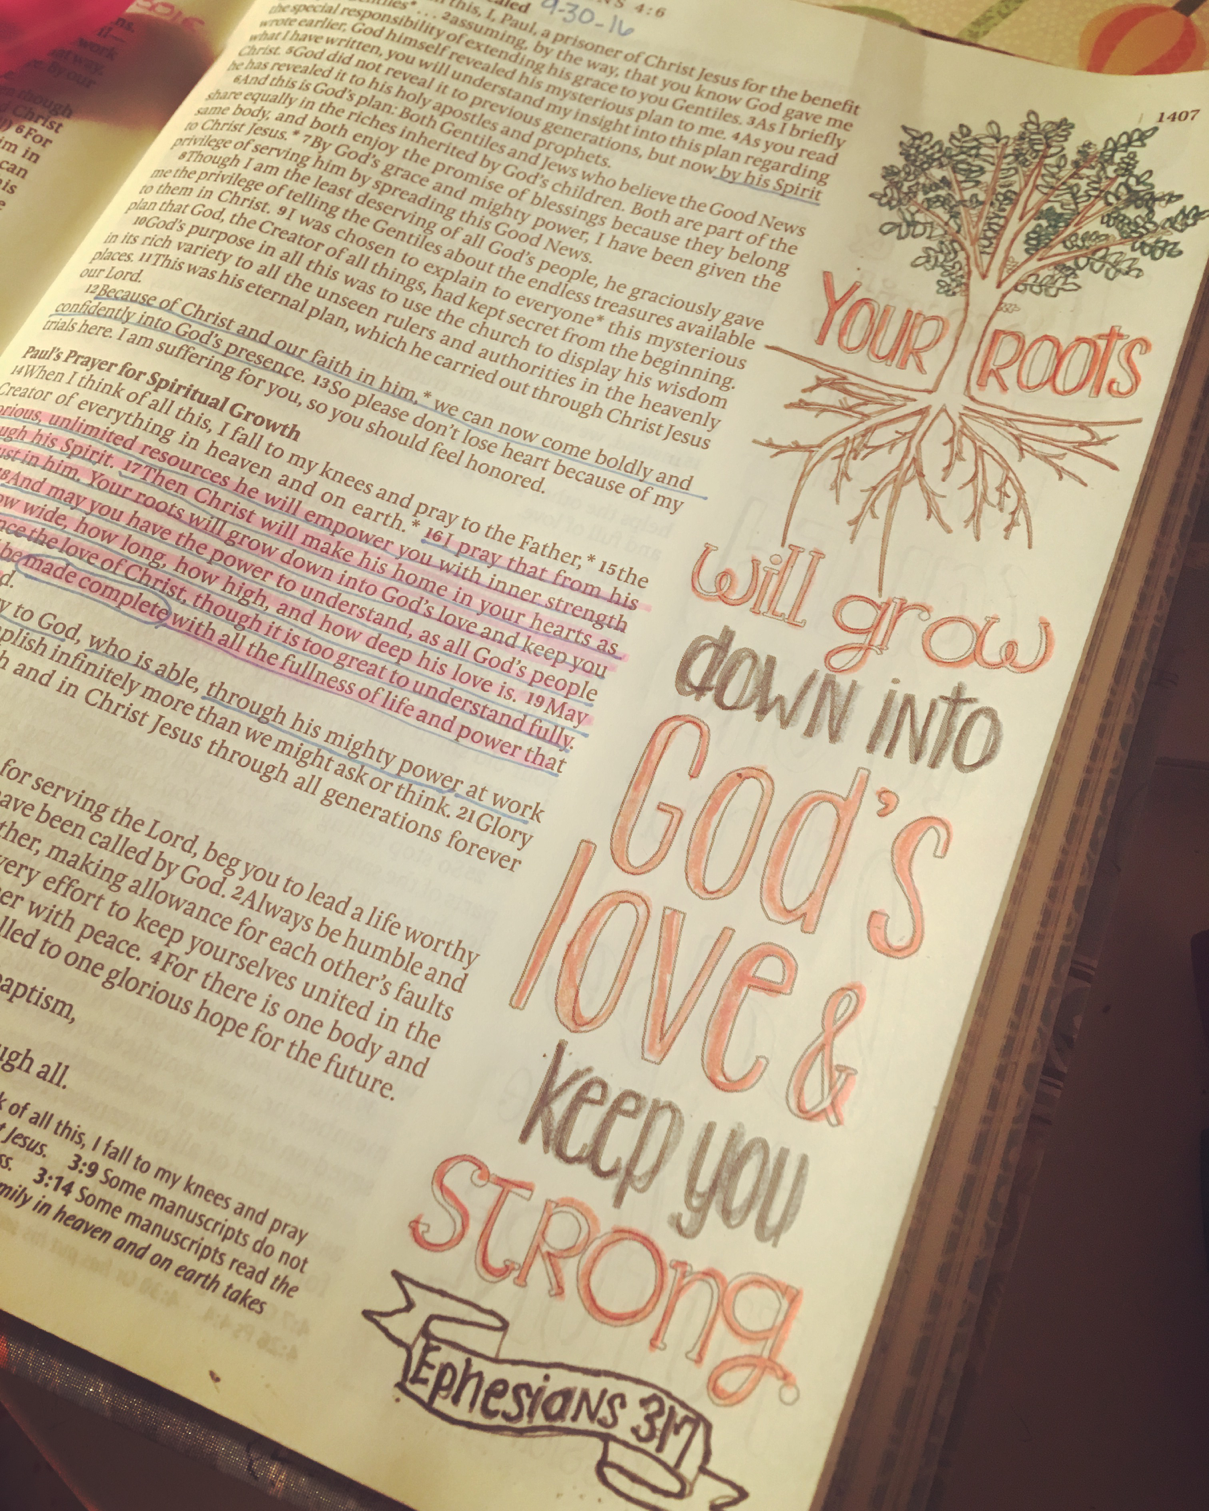 NS 4:6
9-30-16
1407
2016
ns.
work
at way.
e. By our
though
d Christ
6For
im in
can
his
n this, I, Paul, a prisoner of Christ Jesus for the benefit
2assuming, by the way, that you know God gave me
the special responsibility of extending his grace to you Gentiles. 3As I briefly
wrote earlier, God himself revealed his mysterious plan to me. 4As you read
what I have written, you will understand my insight into this plan regarding
Christ. 5God did not reveal it to previous generations, but now by his Spirit
he has revealed it to his holy apostles and prophets.
6And this is God's plan: Both Gentiles and Jews who believe the Good News
share equally in the riches inherited by God's children. Both are part of the
same body, and both enjoy the promise of blessings because they belong
to Christ Jesus.* 7By God's grace and mighty power, I have been given the
privilege of serving him by spreading this Good News.
8Though I am the least deserving of all God's people, he graciously gave
me the privilege of telling the Gentiles about the endless treasures available
to them in Christ. 9I was chosen to explain to everyone* this mysterious
plan that God, the Creator of all things, had kept secret from the beginning.
10God's purpose in all this was to use the church to display his wisdom
in its rich variety to all the unseen rulers and authorities in the heavenly
places. 11This was his eternal plan, which he carried out through Christ Jesus
our Lord.
12Because of Christ and our faith in him,* we can now come boldly and
confidently into God's presence. 13So please don't lose heart because of my
trials here. I am suffering for you, so you should feel honored.
Paul's Prayer for Spiritual Growth
14When I think of all this, I fall to my knees and pray to the Father,* 15the
Creator of everything in heaven and on earth.* 16I pray that from his
orious, unlimited resources he will empower you with inner strength
ugh his Spirit. 17Then Christ will make his home in your hearts as
ust in him. Your roots will grow down into God's love and keep you
18And may you have the power to understand, as all God's people
ow wide, how long, how high, and how deep his love is. 19May
nce the love of Christ, though it is too great to understand fully.
be made complete with all the fullness of life and power that
d.
y to God, who is able, through his mighty power at work
plish infinitely more than we might ask or think. 21Glory
h and in Christ Jesus through all generations forever
for serving the Lord, beg you to lead a life worthy
ave been called by God. 2Always be humble and
ther, making allowance for each other's faults
very effort to keep yourselves united in the
er with peace. 4For there is one body and
lled to one glorious hope for the future.
aptism,
ugh all.
k of all this, I fall to my knees and pray
t Jesus. 3:9 Some manuscripts do not
ss. 3:14 Some manuscripts read the
mily in heaven and on earth takes
YOUR ROOTS
will grow
down into
God's
love &
keep you
STRONg.
Ephesians 3:17